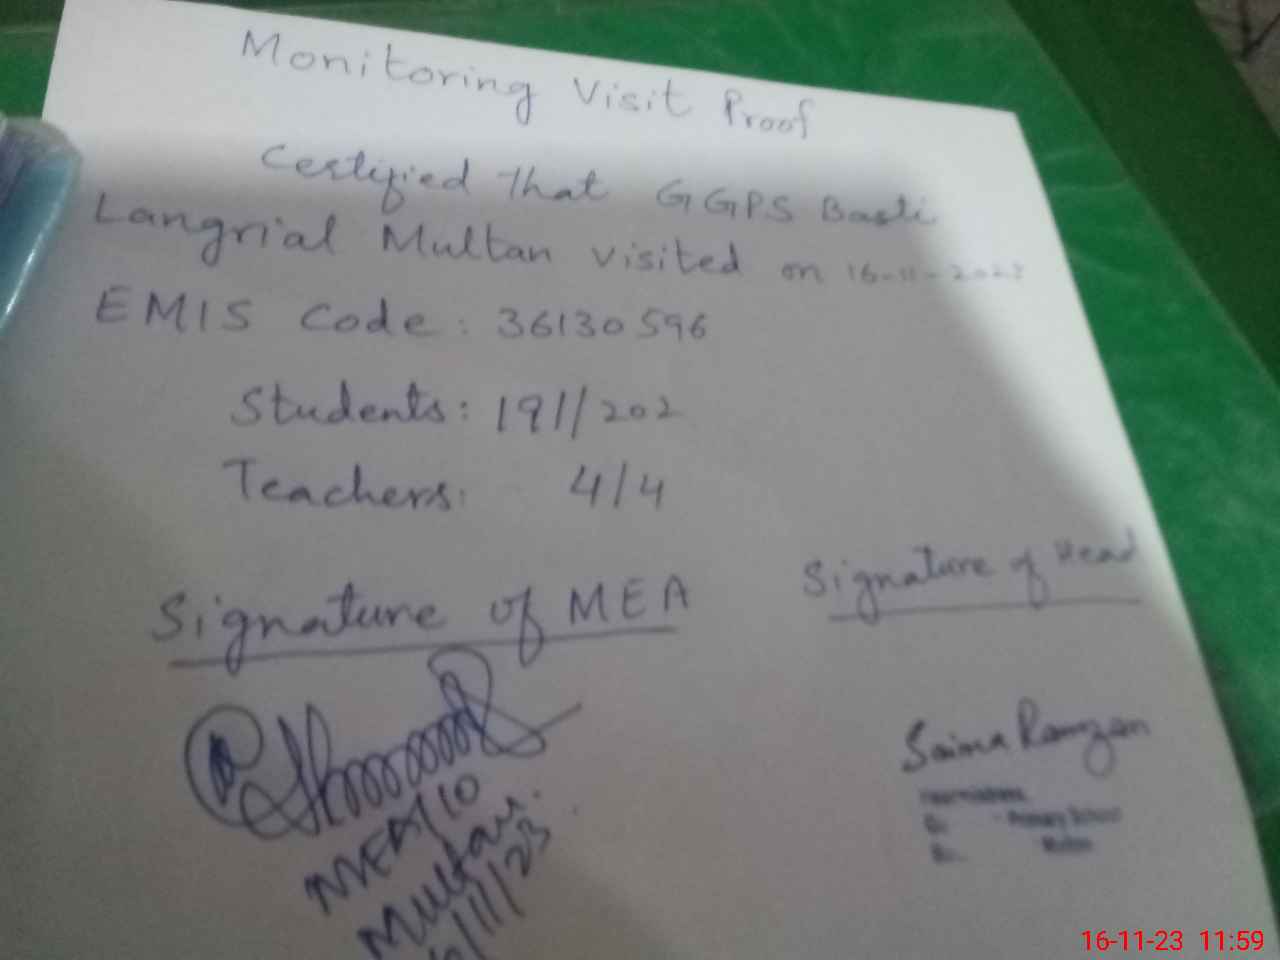 Monitoring Visit Proof
Certified that GGPS Basti
Langrial Multan visited on 16-11-2023
EMIS Code: 36130596
Students: 191/202
Teachers: 4/4
Signature of MEA
Signature of Head
MEA/10
Multan.
/11/23
Saima Ramzan
Primary School
16-11-23 11:59